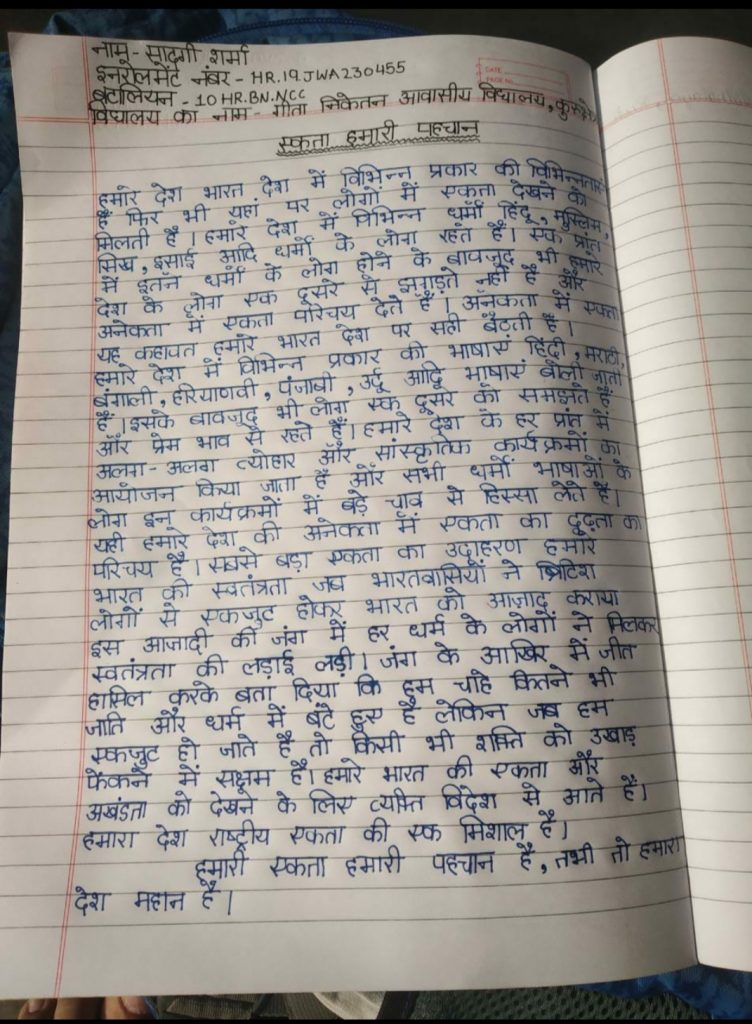 नाम - सादगी शर्मा
इनरोलमेंट नंबर - HR.19.JWA230455
DATE
PAGE NO.
बटालियन - 10 HR.BN.NCC
विद्यालय का नाम - गीता निकेतन आवासीय विद्यालय, कुरुक्षेत्र
एकता हमारी पहचान
हमारे देश भारत देश में विभिन्न प्रकार की विभिन्नताएं
हैं फिर भी यहां पर लोगों में एकता देखने को
मिलती है। हमारे देश में विभिन्न धर्मों हिंदू, मुस्लिम,
सिख, इसाई आदि धर्मों के लोग रहते हैं। एक प्रांत
में इतने धर्मों के लोग होने के बावजूद भी हमारे
देश के लोग एक दूसरे से झगड़ते नहीं हैं और
अनेकता में एकता परिचय देते हैं। अनेकता में एकता
यह कहावत हमारे भारत देश पर सही बैठती है।
हमारे देश में विभिन्न प्रकार की भाषाएं हिंदी, मराठी,
बंगाली, हरियाणवी, पंजाबी, उर्दू आदि भाषाएं बोली जाती
हैं। इसके बावजूद भी लोग एक दूसरे को समझते हैं
और प्रेम भाव से रहते हैं। हमारे देश के हर प्रांत में
अलग-अलग त्योहार और सांस्कृतिक कार्यक्रमों का
आयोजन किया जाता है और सभी धर्मों भाषाओं के
लोग इन कार्यक्रमों में बड़े चाव से हिस्सा लेते हैं।
यही हमारे देश की अनेकता में एकता का दृढ़ता का
परिचय है। सबसे बड़ा एकता का उदाहरण हमारे
भारत की स्वतंत्रता जब भारतवासियों ने ब्रिटिश
लोगों से एकजुट होकर भारत को आज़ाद कराया
इस आजादी की जंग में हर धर्म के लोगों ने मिलकर
स्वतंत्रता की लड़ाई लड़ी। जंग के आखिर में जीत
हासिल करके बता दिया कि हम चाहे कितने भी
जाति और धर्म में बंटे हुए हैं लेकिन जब हम
एकजुट हो जाते हैं तो किसी भी शक्ति को उखाड़
फेंकने में सक्षम हैं। हमारे भारत की एकता और
अखंडता को देखने के लिए व्यक्ति विदेश से आते हैं।
हमारा देश राष्ट्रीय एकता की एक मिशाल है।
हमारी एकता हमारी पहचान है, तभी तो हमारा
देश महान है।